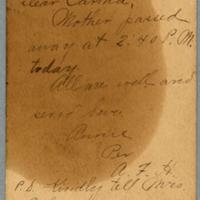 Dear Carina,
Mother passed
away at 2:40 P.M.
today.
All are well and
send love
Annie
Per
A. F. H.
P.S. Kindly tell Mrs